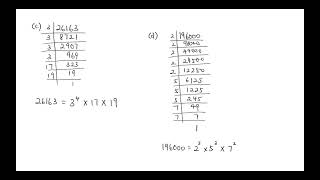 (c) 3 | 26163
3 | 8721
3 | 2907
3 | 969
17 | 323
19 | 19
1
26163 = 3⁴ × 17 × 19
(d) 2 | 196000
2 | 98000
2 | 49000
2 | 24500
2 | 12250
5 | 6125
5 | 1225
5 | 245
7 | 49
7 | 7
1
196000 = 2⁵ × 5³ × 7²